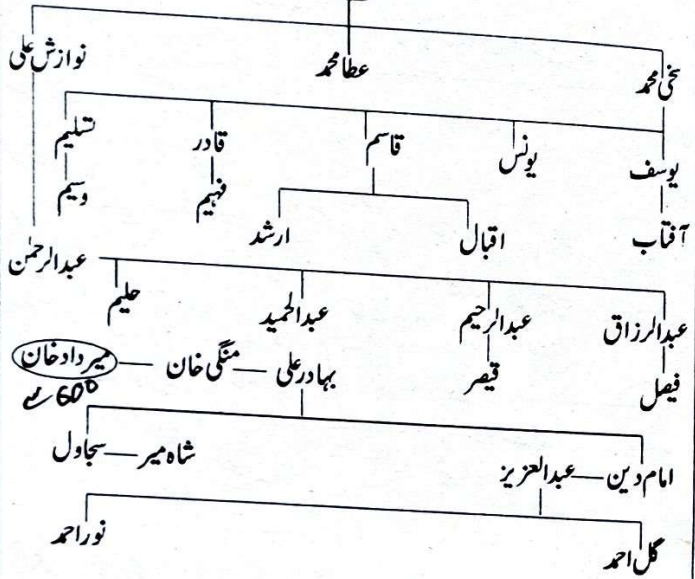 سخی محمد عطا محمد نوازش علی
یوسف یونس قاسم قادر تسلیم
آفتاب اقبال ارشد فہیم وسیم
عبدالرحمٰن
عبدالرزاق عبدالرحیم عبدالحمید حلیم
فیصل قیصر
بہادر علی منگی خان میر داد خان
امام دین عبدالعزیز شاہ میر سجاول
گل احمد نور احمد